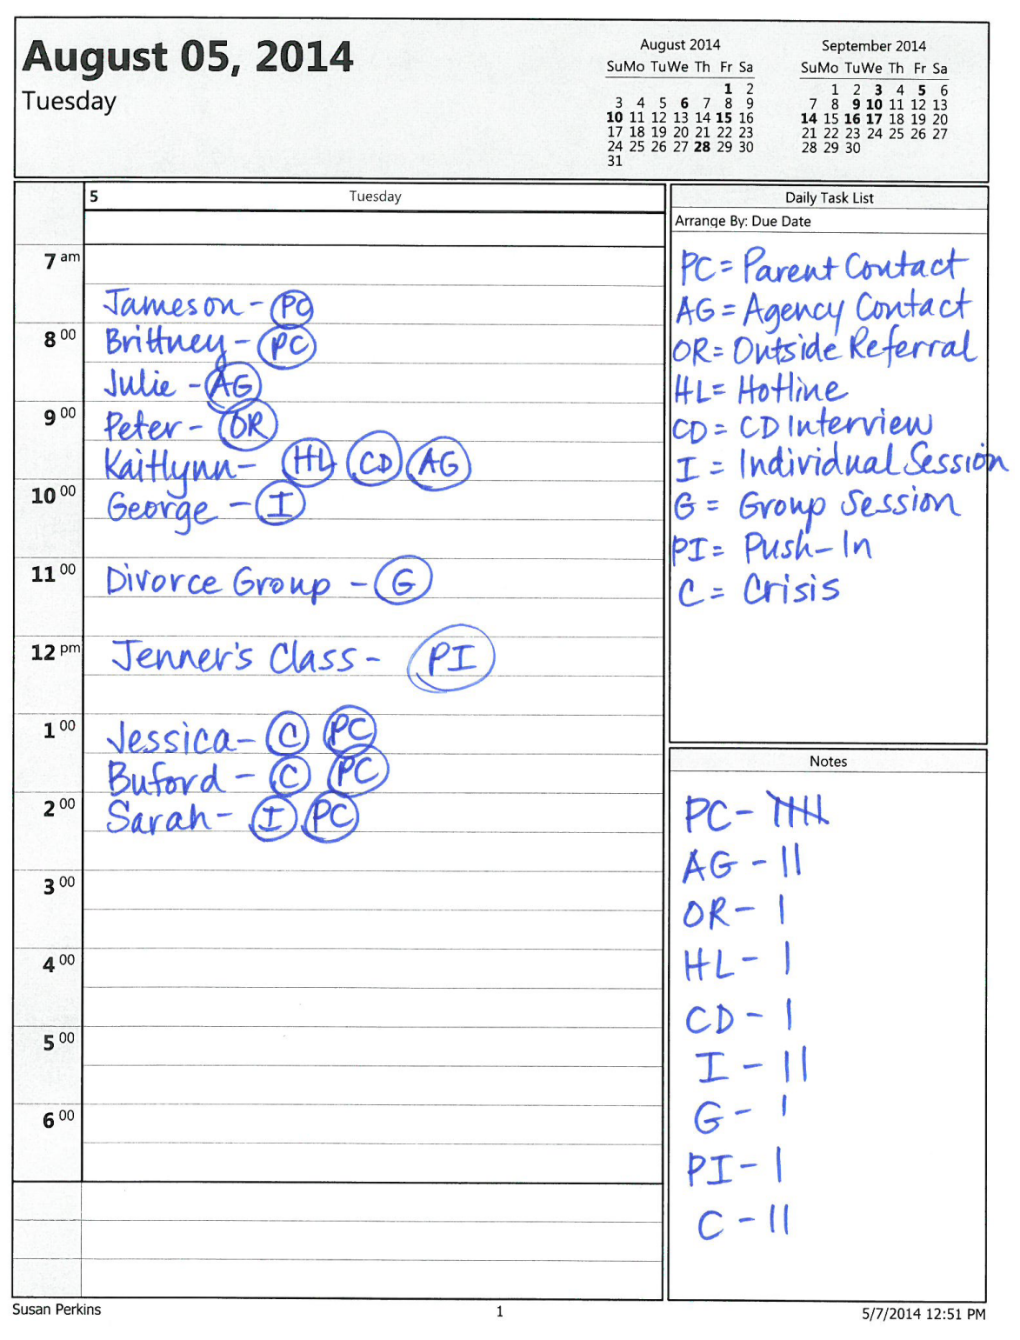 August 05, 2014
Tuesday
August 2014
SuMo TuWe Th Fr Sa
1 2
3 4 5 6 7 8 9
10 11 12 13 14 15 16
17 18 19 20 21 22 23
24 25 26 27 28 29 30
31
September 2014
SuMo TuWe Th Fr Sa
1 2 3 4 5 6
7 8 9 10 11 12 13
14 15 16 17 18 19 20
21 22 23 24 25 26 27
28 29 30
5 Tuesday
7 am
Jameson - PC
8 00 Brittney - PC
Julie - AG
9 00 Peter - OR
Kaitlynn - HL CD AG
10 00 George - I
11 00 Divorce Group - G
12 pm Jenner's Class - PI
1 00 Jessica - C PC
Buford - C PC
2 00 Sarah - I PC
3 00
4 00
5 00
6 00
Daily Task List
Arrange By: Due Date
PC = Parent Contact
AG = Agency Contact
OR = Outside Referral
HL = Hotline
CD = CD Interview
I = Individual Session
G = Group Session
PI = Push-In
C = Crisis
Notes
PC - IIIII
AG - II
OR - I
HL - I
CD - I
I - II
G - I
PI - I
C - II
Susan Perkins
1
5/7/2014 12:51 PM